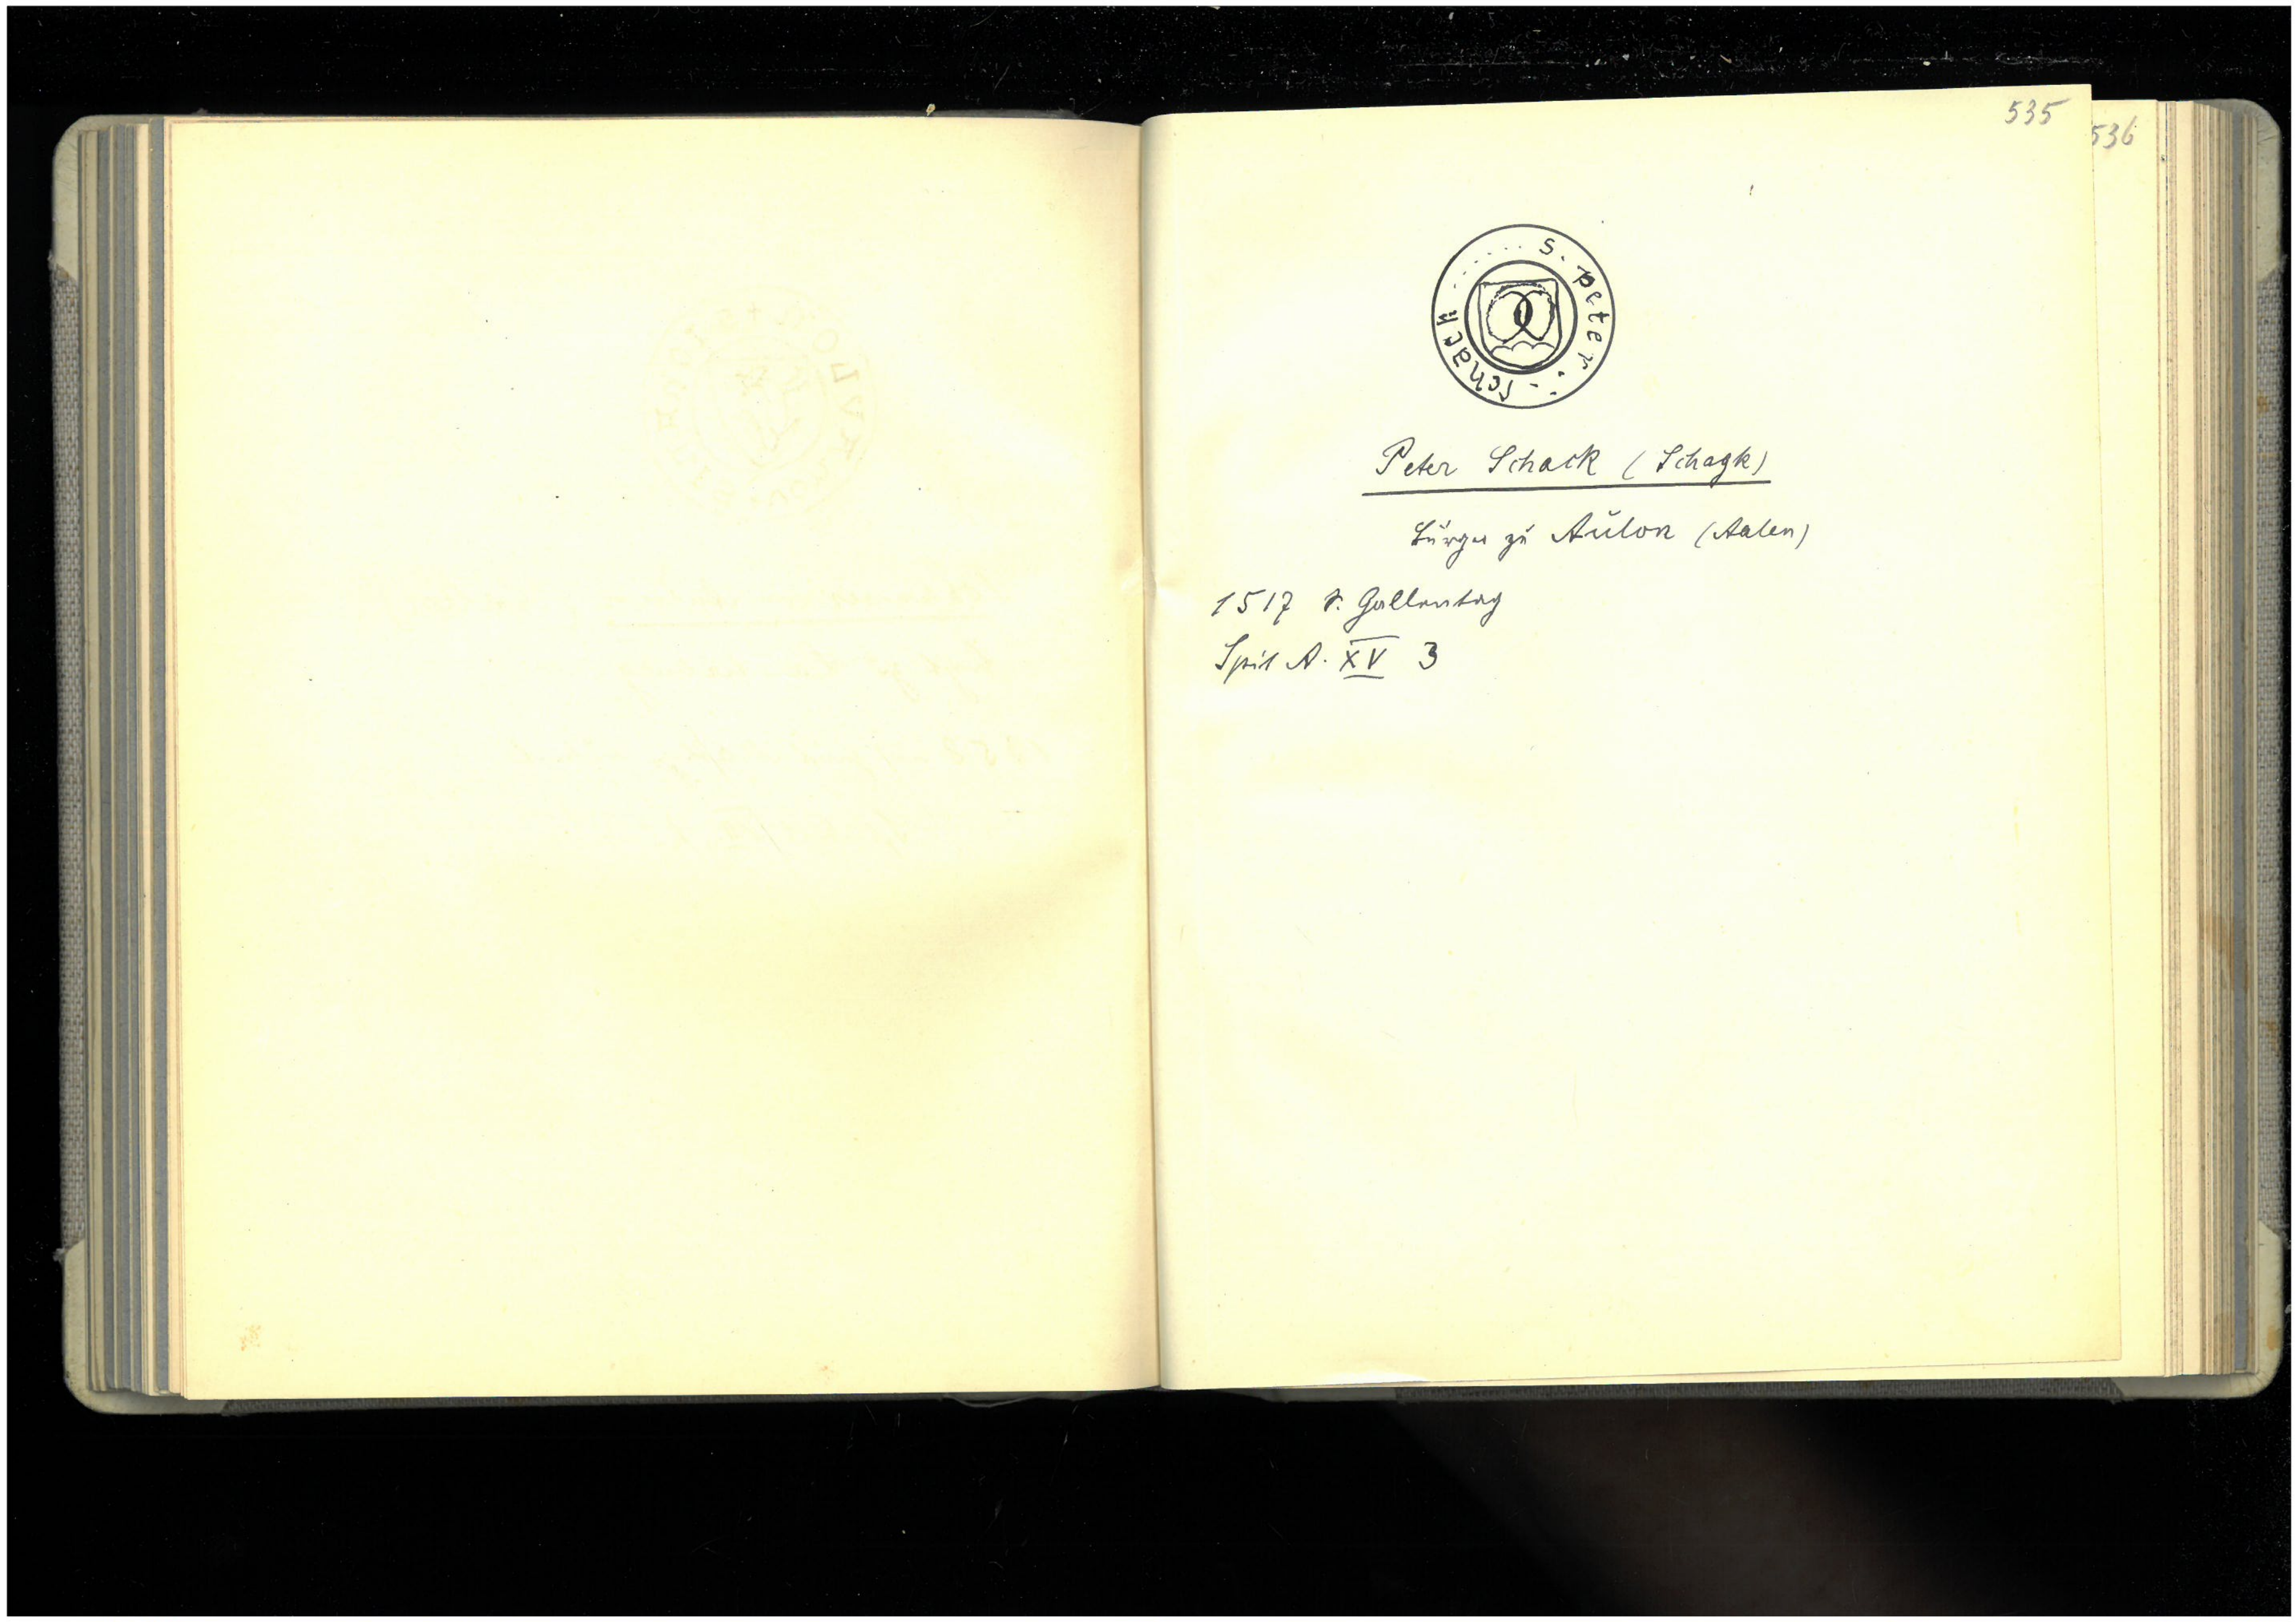 535
536
S. peter : schack
Peter Schack (Schagk)
Bürger zu Aulon (Aalen)
1517 S. Gallentag
Spit A. XV 3